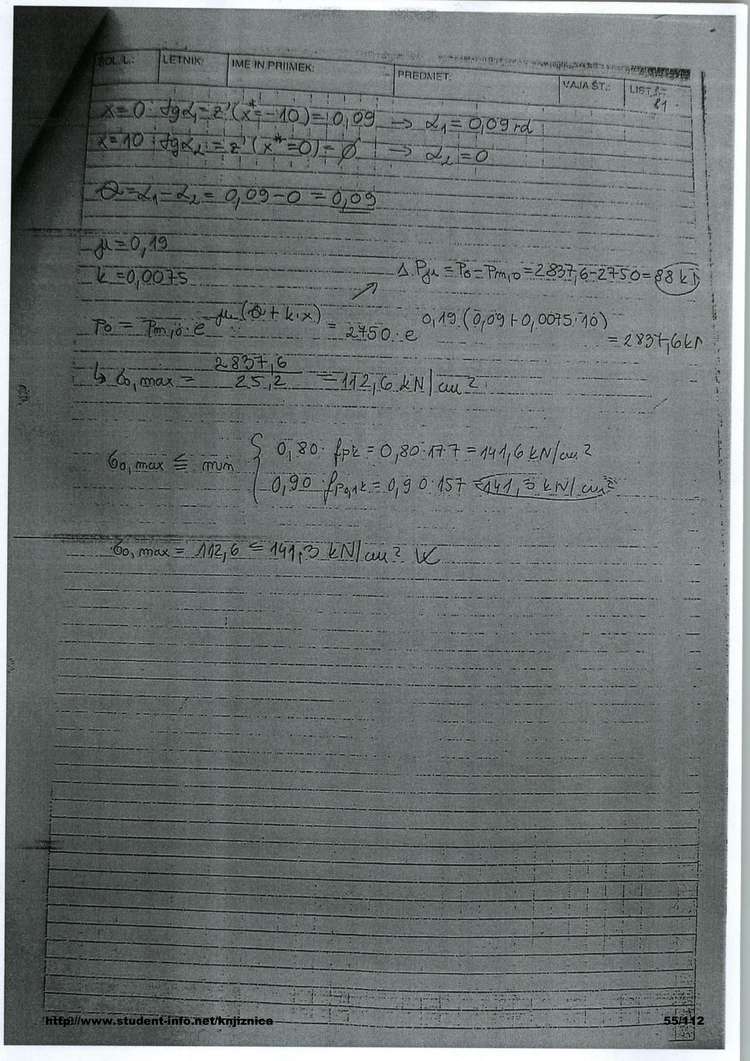 ŠOL. L.: LETNIK: IME IN PRIIMEK: PREDMET: VAJA ŠT.: LIST
x=0 : tgα₁ = z'(x*=-10) = 0,09 → α₁ = 0,09 rd
x=10 : tgα₂ = z'(x*=0) = ∅ → α₂ = 0
Θ = α₁ - α₂ = 0,09 - 0 = 0,09
μ = 0,19
k = 0,0075
Δ Pμ = P₀ - Pm,0 = 2837,6 - 2750 = 88 kN
P₀ = Pm,0 · e^μ(Θ + k·x) = 2750 · e^0,19(0,09 + 0,0075·10) = 2837,6 kN
↳ σ₀,max = 2837,6 / 25,2 = 112,6 kN/cm²
σ₀,max ≤ min { 0,80 · fpk = 0,80·177 = 141,6 kN/cm²
0,90 · fp0,1k = 0,90·157 = 141,3 kN/cm²
σ₀,max = 112,6 ≤ 141,3 kN/cm²
http://www.student-info.net/knjiznica
55/112